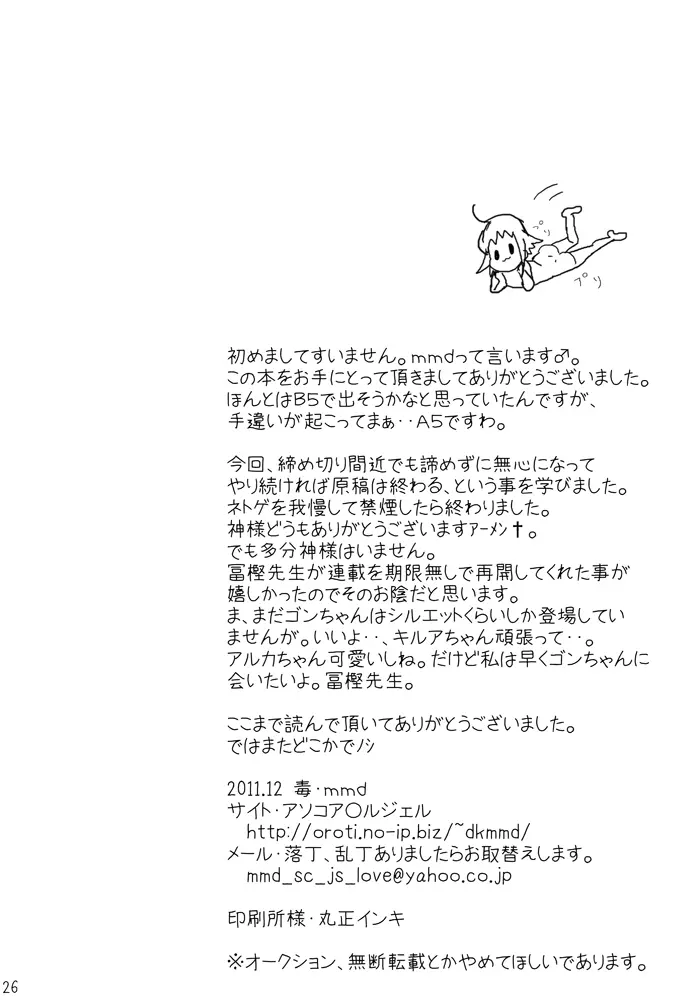 プリ
プリ
初めましてすいません。mmdって言います♂。
この本をお手にとって頂きましてありがとうございました。
ほんとはB5で出そうかなと思っていたんですが、
手違いが起こってまぁ‥A5ですわ。
今回、締め切り間近でも諦めずに無心になって
やり続ければ原稿は終わる、という事を学びました。
ネトゲを我慢して禁煙したら終わりました。
神様どうもありがとうございますｱｰﾒﾝ✝。
でも多分神様はいません。
冨樫先生が連載を期限無しで再開してくれた事が
嬉しかったのでそのお陰だと思います。
ま、まだゴンちゃんはシルエットくらいしか登場してい
ませんが。いいよ‥、キルアちゃん頑張って‥。
アルカちゃん可愛いしね。だけど私は早くゴンちゃんに
会いたいよ。冨樫先生。
ここまで読んで頂いてありがとうございました。
ではまたどこかでﾉｼ
2011.12 毒・mmd
サイト・アソコア○ルジェル
http://oroti.no-ip.biz/~dkmmd/
メール・落丁、乱丁ありましたらお取替えします。
mmd_sc_js_love@yahoo.co.jp
印刷所様・丸正インキ
※オークション、無断転載とかやめてほしいであります。
26